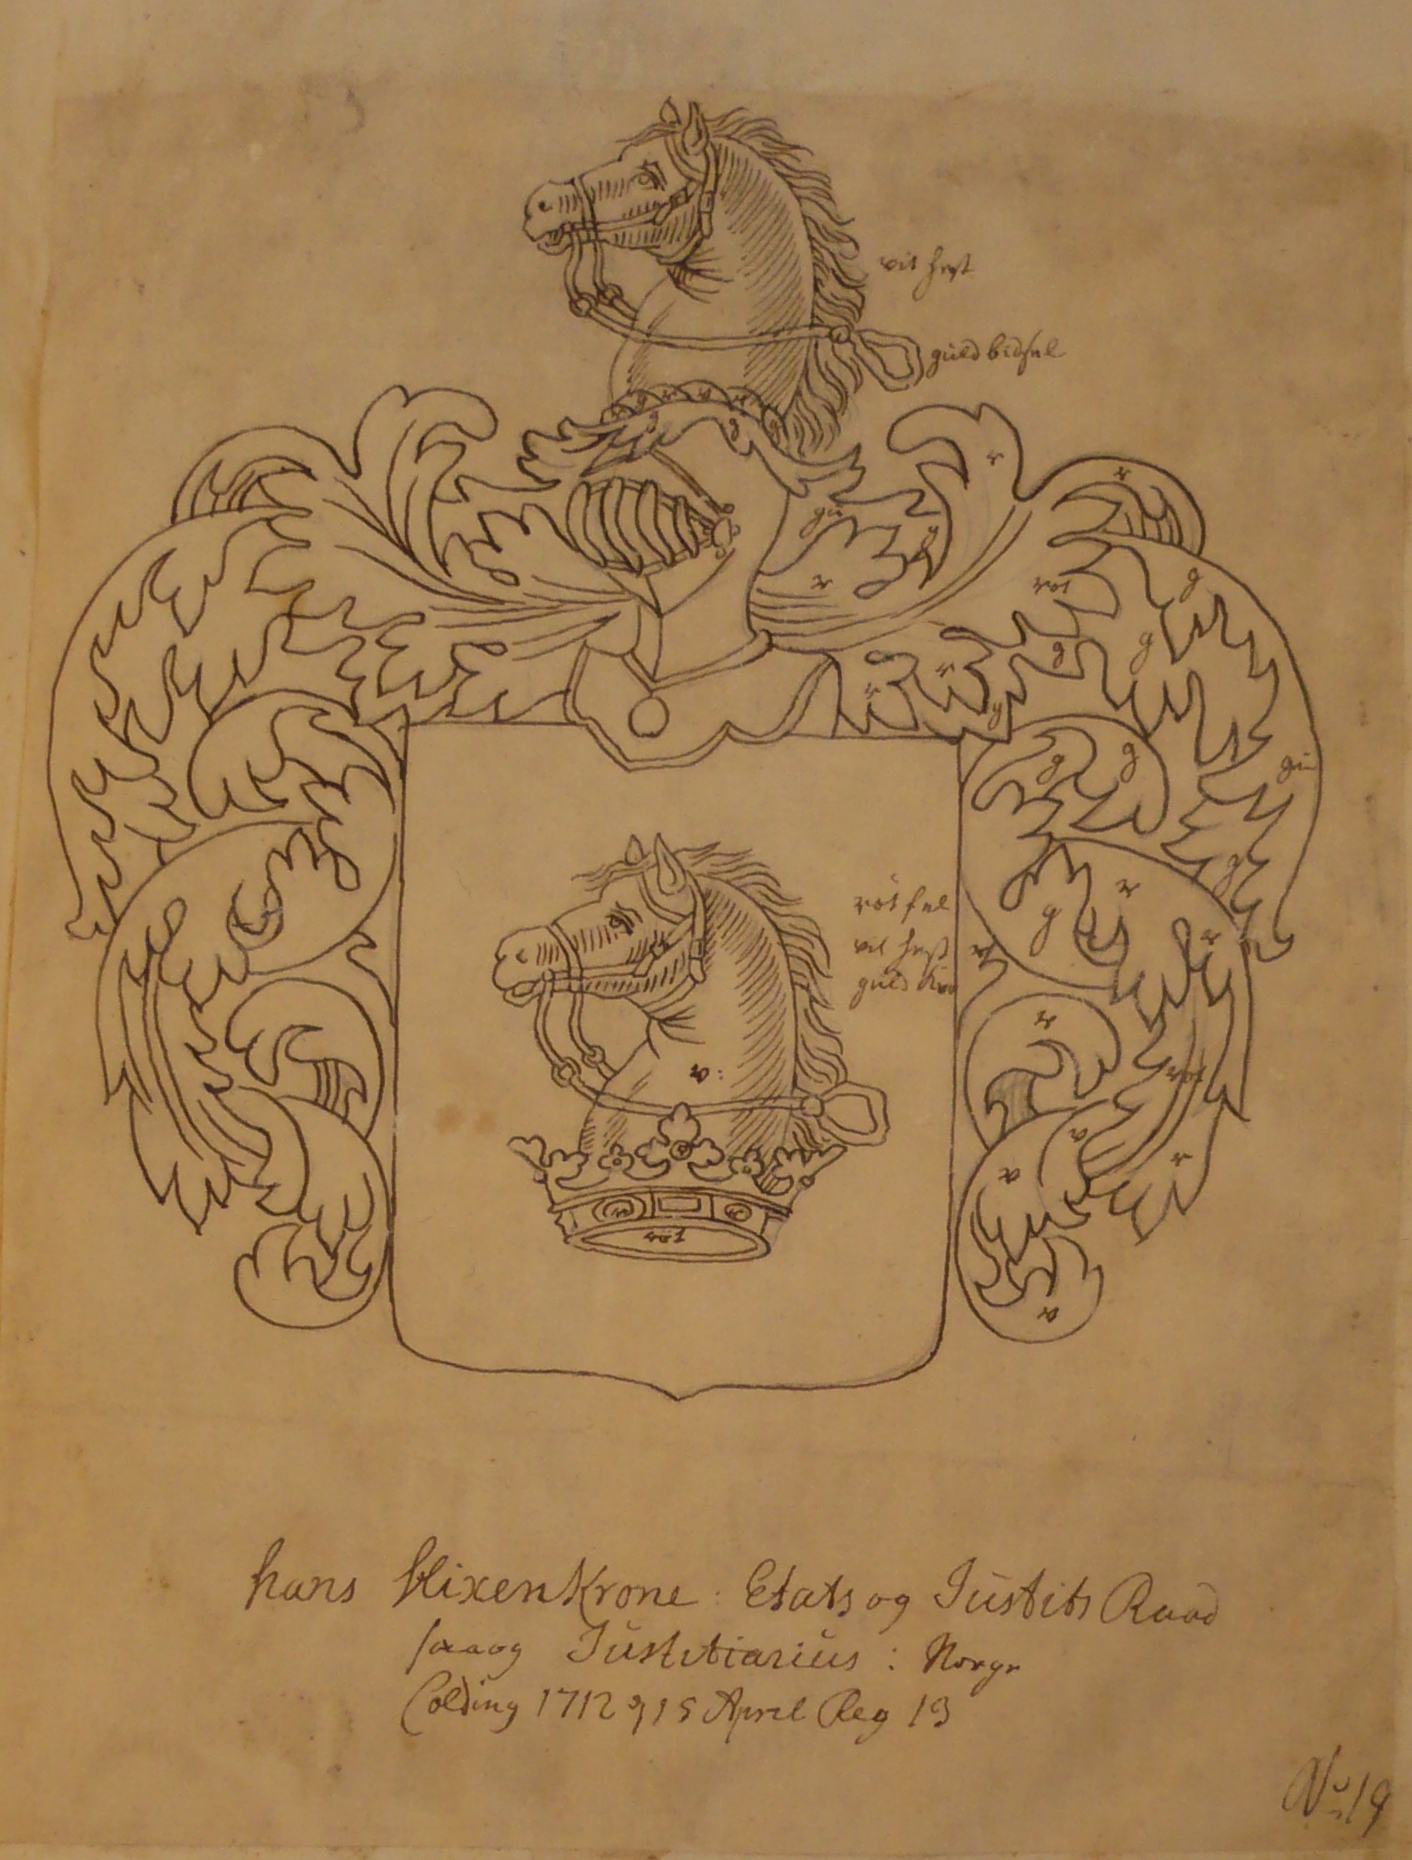 vit hest
guld bidsel
r g r v r
g
g
g
r
r
gu
g
r
rot
g
g
g
r
r
g
g
g
gu
g
r
g
r
röt fel
vit hest
guld kro
r
v:
r
rot
r
r
röt
hans Nixen Krone: Etats og Justits Raad
saa og Justitiarius: Norge
Colding 1712 d 15 April Reg 13
No 19